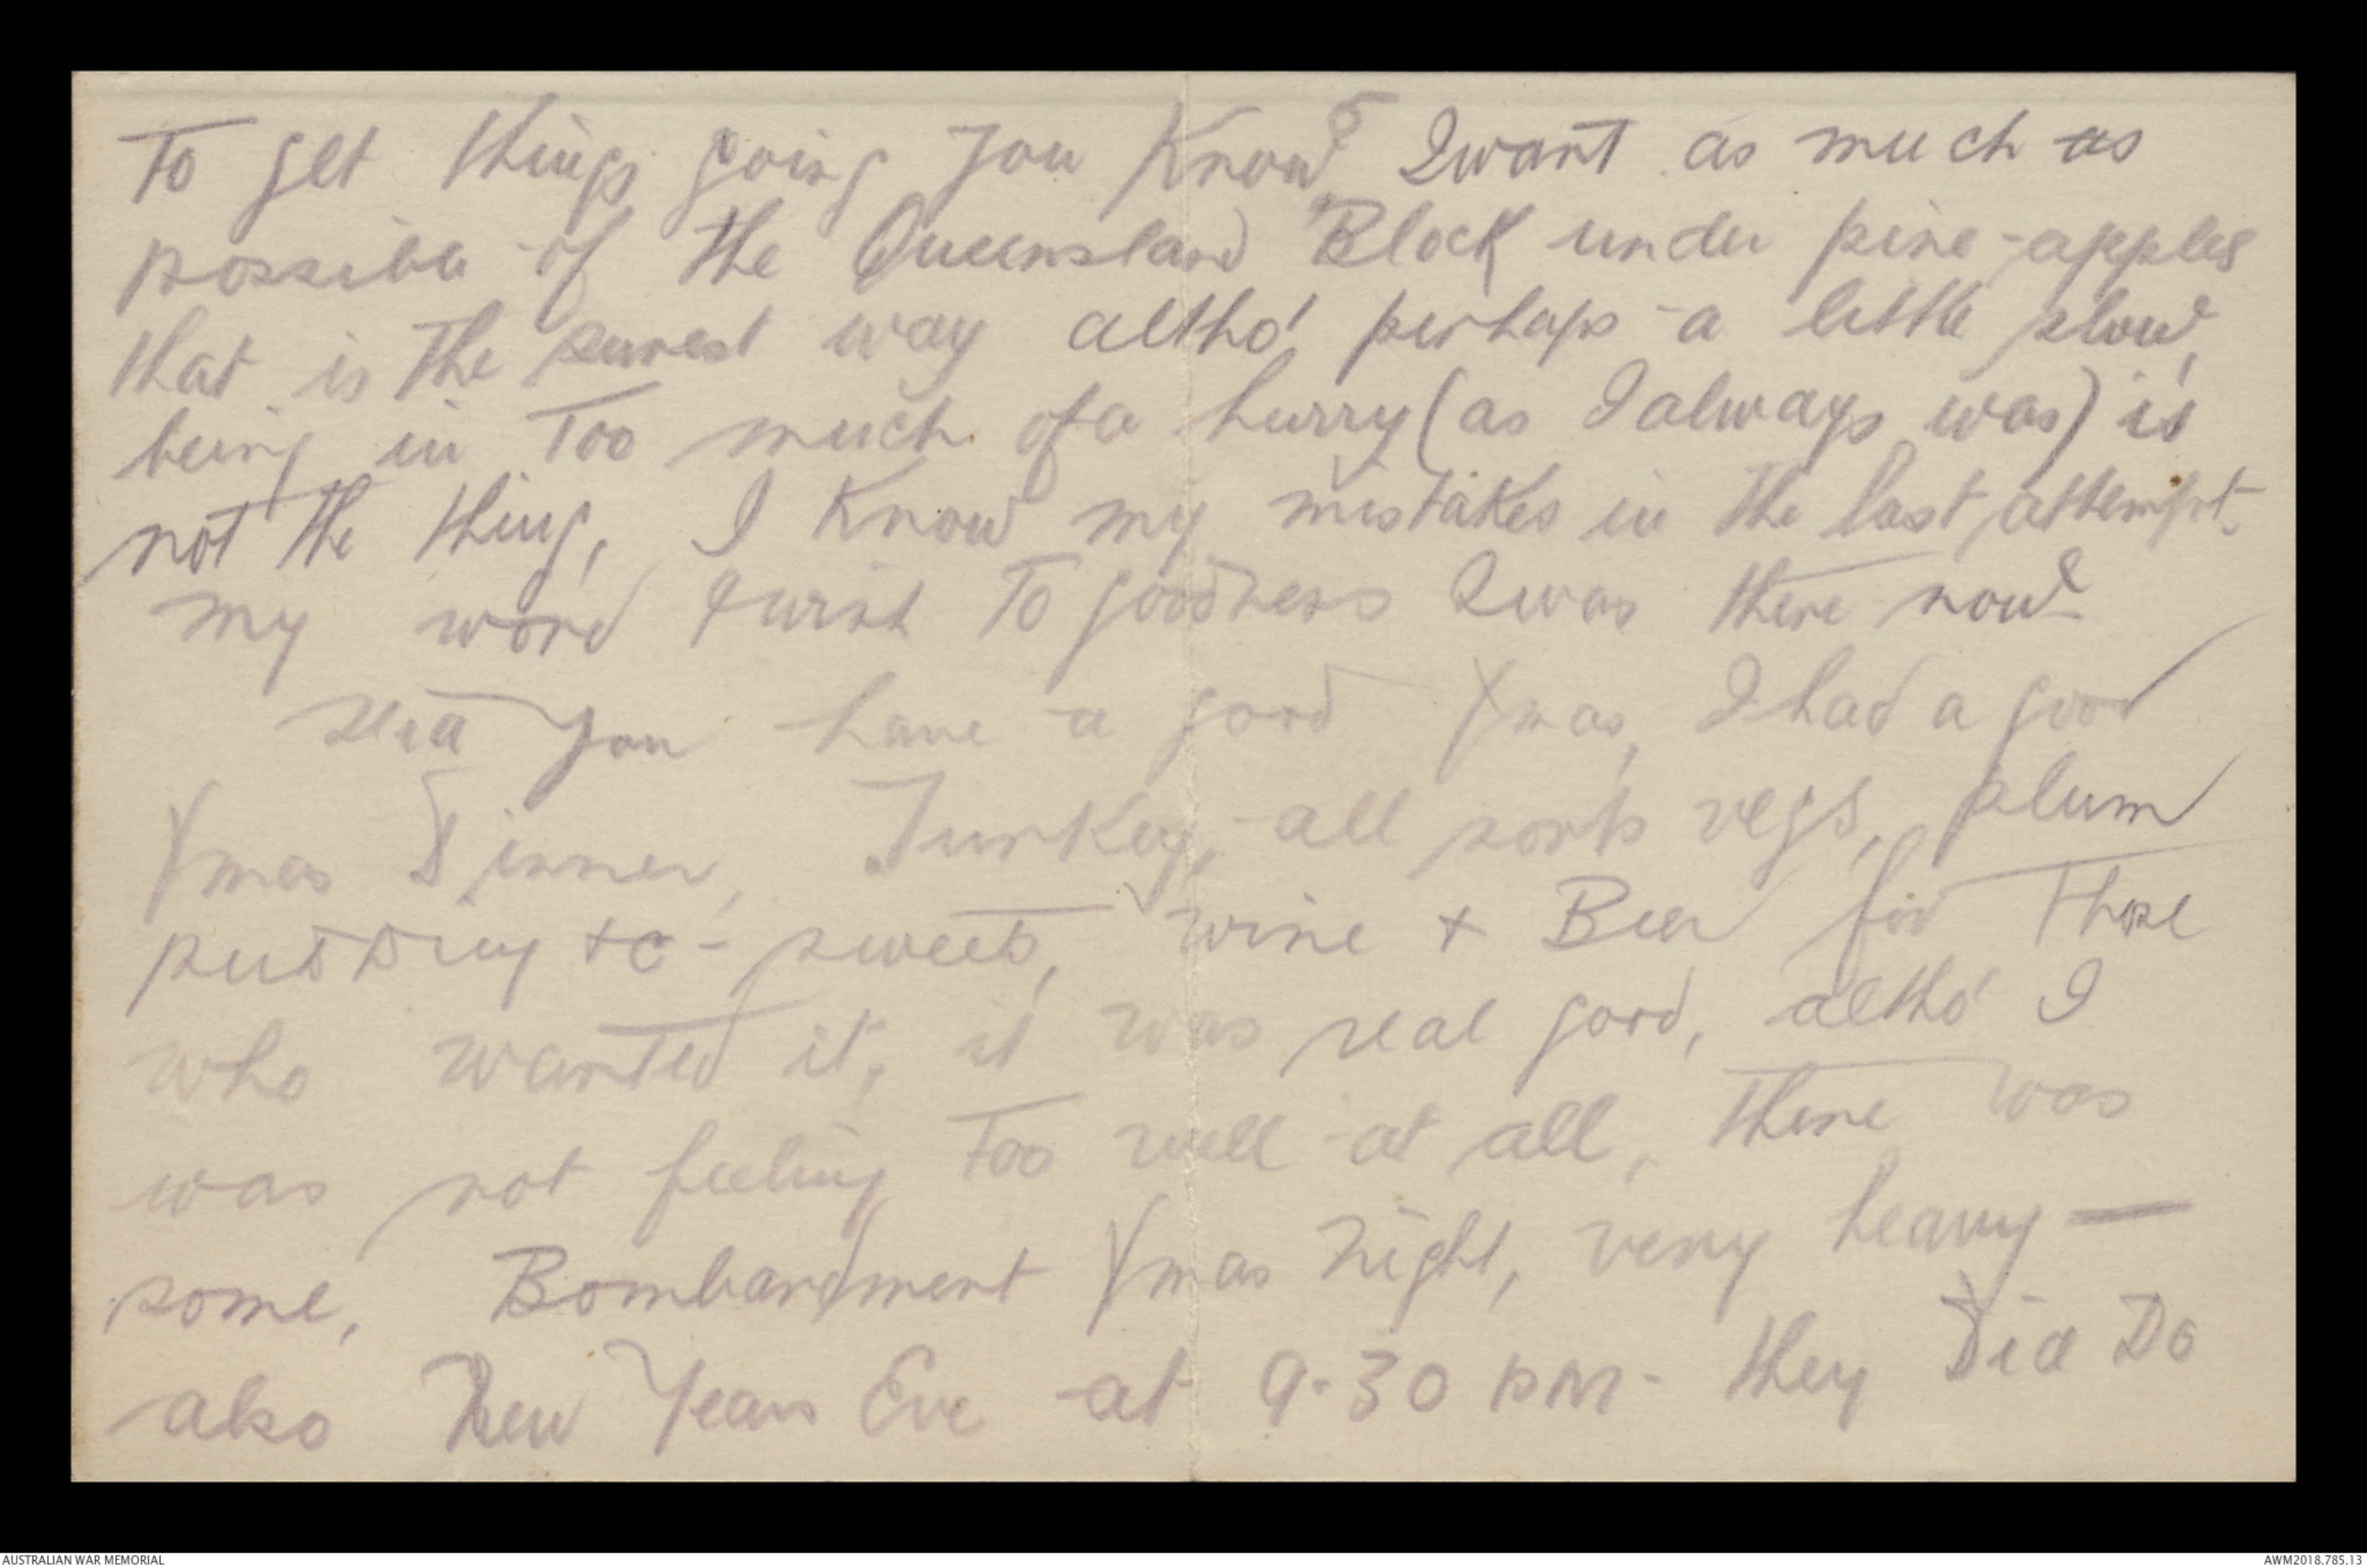 5
To get things going you Know, I want as much as
possible of the Queensland Block under pine-apples
that is the surest way altho' perhaps a little slow,
being in Too much of a hurry (as I always was) is
not the thing, I Know my mistakes in the last attempt.
my word I wish To goodness I was there now
you have a good Xmas, I had a good
Xmas Dinner, Turkey, all sorts vegs, plum
pudding &c - sweets, wine & Beer for Those
who wanted it, it was real good, altho' I
was not feeling Too well at all, There was
some, Bombardment Xmas Night, very heavy —
also New Years Eve at 9.30 PM - they Did Do
AUSTRALIAN WAR MEMORIAL
AWM2018.785.13